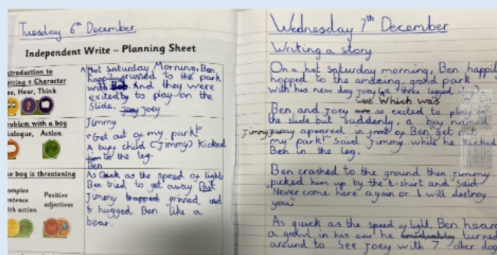 Tuesday 6th December
Independent Write – Planning Sheet
troduction to
etting & Character
ee, Hear, Think
A Hot Saturday Morning, Ben
happily to the park
with And they were
excited to play on the
Slide. Joey
roblem with a boy
ialogue, Action
Jimmy
"Get out of my park!"
A bugs child (Jimmy) kicked
to the leg.
Ben
he boy is threatening
omplex
entence
ith action
Positive
adjectives
As Quick as the speed of light
Ben tried to get away But
Jimmy grinned and
hugged Ben like a
bear.
Wednesday 7th December
Writing a story
On a hot saturday morning, Ben happil
hopped to the park
with his new dog Joey three legged
which was
Ben and Joey so excited to play
the slide but suddenly, a boy
Jimmy appeared in of Ben "get out
my park!" Said Jimmy while he kicked
Ben in the leg.
Ben crashed to the ground then Jimmy
picked him up by the t-shirt and said
"Never come here again or I will destroy
you"
As quick as the speed of light, Ben hear
a growl in his ear he turned
around to see Joey with 7 other dog